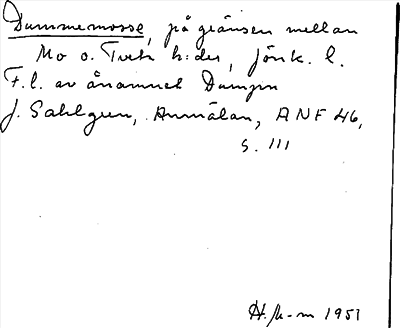 Dummemosse, på gränsen mellan
Mo o. Tveta h:der, Jönk. l.
F.l. av ånamnet Dumpn
J. Sahlgren, Anmälan, ANF 46,
s. 111
H. J-m 1951